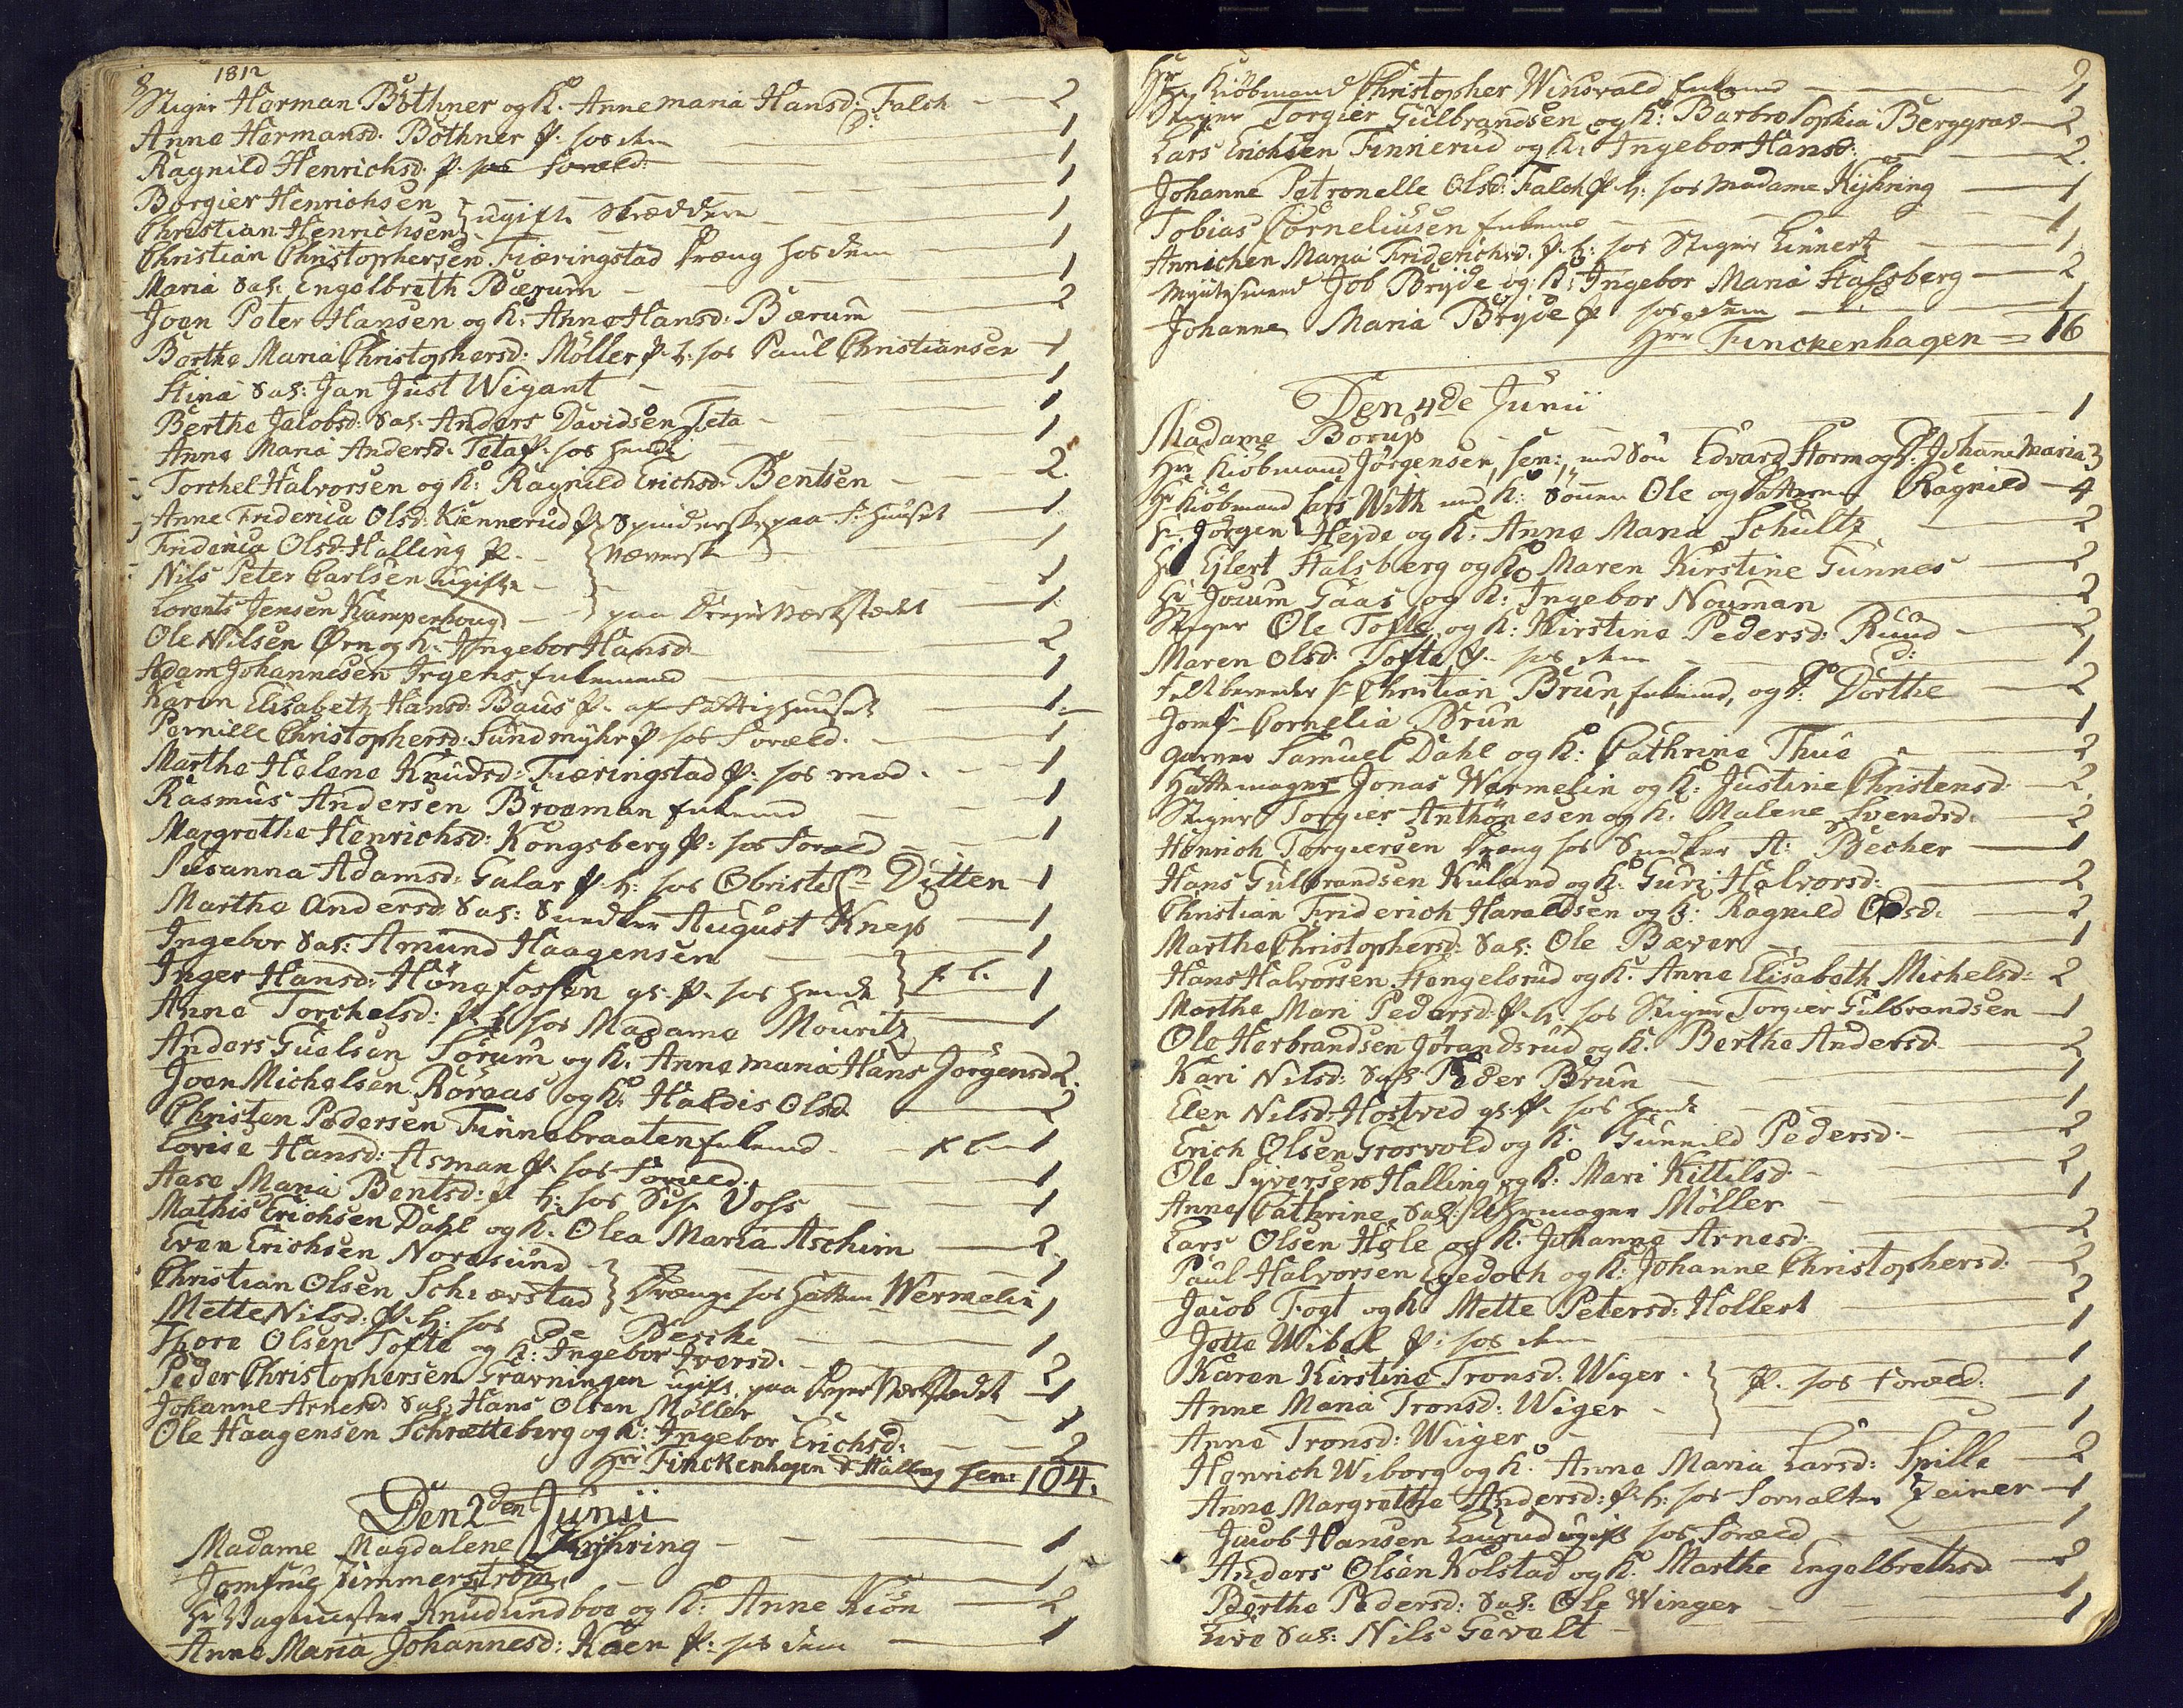 8 1812
Stiger Herman Böthner og K. Anne Maria Hansd: Falch — 2
Anne Hermansd. Böthner P. hos dem — 1
Ragnild Henrichsd. P. hos Foræld: — 1
Börgier Henrichsen — 1
Christian Henrichsen } ugifte Skræddere — 1
Christian Christophersen Fiæringstad Dræng hos dem — 1
Maria Sal: Engelbreth Bærum — 1
Joen Peter Hansen og K: Anne Hansd: Bærum — 2
Borthe Maria Christophersd: Möller P. h: hos Paul Christiansen — 1
Stina Sal: Jan Just Wigant — 1
Berthe Jacobsd: Sal. Anders Davidsen Teta — 1
Anne Maria Andersd. Teta P. hos hende — 1
Torchel Halvorsen og K: Ragnild Erichsd. Bentsen — 2.
Anne Friderica Olsd: Kiennerud P. Spinderske paa F: Huuset — 1
Friderica Olsd: Halling P. } Væverske — 1
Nils Peter Carlsen ugifte — 1
Lorents Jensen Kamperhoug } paa Dreyer Værkstedet — 1
Ole Nilsen Örn og K. Ingebor Hansd. — 2
Adam Johannesen Irgens, Enkemand — 1
Karen Elisabeth Hansd: Baus P. af Fattighuuset — 1.
Pernille Christophersd: Sundmyhr P hos Foræld. — 1
Marthe Helene Knudsd: Fiæringstad P. hos mod. — 1
Rasmus Andersen Brosman Enkemd — 1
Margrethe Henrichsd: Kongsberg P: hos Foræld — 1
Susanna Adamsd: Galar P. h: hos Obriste Ditten — 1
Marthe Andersd: Sal: Snedker August Knep — 1
Ingebor Sal: Amund Haagensen — 1
Inger Hansd: Hönefossen gl. P. hos hende — 1
Anne Torchelsd: P. h hos Madame Mouritz — 1
Anders Guelsen Sörum og K. Anne Maria Hans Jörgensd 2.
Joen Michelsen Röraas og K: Haldis Olsd — 2
Christen Pedersen Finnebraaten Enkemd — 1
Lovise Hansd: Asman P. hos Foræld. — 1
Aase Maria Bentsd: P. h: hos Voss — 1
Mathis Erichsen Dahl og K. Olea Maria Aschim — 2.
Even Erichsen Noresund — 1
Christian Olsen Schiærstad } Drænge hos Hattm: Wermelin 1
Mette Nilsd: P. h: hos De Besche — 1
Thore Olsen Tofte og K: Ingebor Iversd. — 2
Peder Christophersen Gravningen ugift, paa Dreyer Værkstedet — 1
Johanne Arnesd: Sal: Hans Olsen Möller — 1
Ole Haagensen Schrætteberg og K: Ingebor Erichsd: — 2
Hrr Finckenhagen & Halling sen: 104.
Den 2den Junii
Madame Magdalene Kyhring — 1
Jomfrue Timmerström — 1
Hr Vagtmester Knud Lindboe og K: Anne Kiön — 2
Anne Maria Johannesd: Kaen P: hos dem — 1
Hr Kiöbmand Christopher Winsvald Enkemd — 1
Stiger Torgier Gulbrandsen og K: Barbro Sophia Berggrav — 2
Lars Erichsen Finnerud og K: Ingebor Hansd: — 2.
Johanne Petronelle Olsd: Falch P. h: hos Madame Kyhring — 1
Tobias Corneliusen Enkemd — 1
Annichen Maria Friderichsd. P. h: hos Stiger Linnert — 1
Myntsmed Job Bryde og K: Ingebor Maria Hassberg — 2
Johanne Maria Bryde P hos dem — 1
Hrr Finckenhagen = 16
Den 4de Junii
Madame Borup — 1
Hr Kiöbmand Jörgensen, sen:, med Sön Edvard Storm og D: Johane Maria 3
Hr Kiöbmand Lars With med K: Sönnen Ole og Datteren Ragnild — 4
Hr. Jörgen Hejde og K: Anne Maria Schultz — 2
Hr Ejlert Halsberg og K: Maren Kirstine Tunnes — 2
Hr Jocum Gaas og K: Ingebor Nouman — 2
Stiger Ole Tofte og K: Kirstine Pedersd: Ruud — 2
Maren Olsd: Tofte P. hos dem — 1
Feldbereder Christian Brun, Enkemd, og D: Dorthe — 2
Jomf Cornelia Brun — 1
Garver Samuel Dahl og K: Cathrine Thue — 2
Hattemager Jonas Wermelin og K: Justine Christensd. — 2.
Stiger Torgier Anthönesen og K: Malene Svendsd: — 2
Henrich Torgiersen Dræng hos Snedker A: Becher — 1
Hans Gulbrandsen Ruland og K: Guri Halvorsd: — 2
Christian Friderich Haraldsen og K: Ragnild Olsd. — 2
Marthe Christophersd: Sal: Ole Bæver — 1
Hans Halvorsen Hengelsrud og K: Anne Elisabeth Michelsd: 2
Marthe Mari Pedersd: P. h: hos Stiger Torgier Gulbrandsen — 1
Ole Herbrandsen Jörandsrud og K: Berthe Andersd. — 2
Kari Nilsd: Sal: Peder Brun — 1
Elen Nilsd: Hostved gl. P. hos hende — 1
Erich Olsen Grosvold og K: Gunnild Pedersd: — 2
Ole Syversen Halling og K: Mari Kittilsd. — 2
Anne Cathrine Sal: Uhrmager Möller — 1
Lars Olsen Hole og K: Johanne Arnesd. — 2
Paul Halvorsen Egedoch og K: Johanne Christophersd. — 2
Jacob Fogt og K: Mette Petersd: Hollert — 2
Jette Wibel P: hos dem — 1
Karen Kirstine Tronsd: Wiger — 1
Anne Maria Tronsd: Wiger } P. hos Foræld: — 1
Anne Tronsd: Wiiger — 1
Henrich Wiborg og K: Anne Maria Larsd: Spille — 2
Anne Margrethe Andersd: P. h: hos Forvalter Zeiner — 1
Jacob Hansen Laurud ugift hos Foræld — 1
Anders Olsen Kolstad og K: Marthe Engelbrethsd — 2
Berthe Pedersd: Sal: Ole Winger — 1
Live Sal: Nils Gevelt — 1